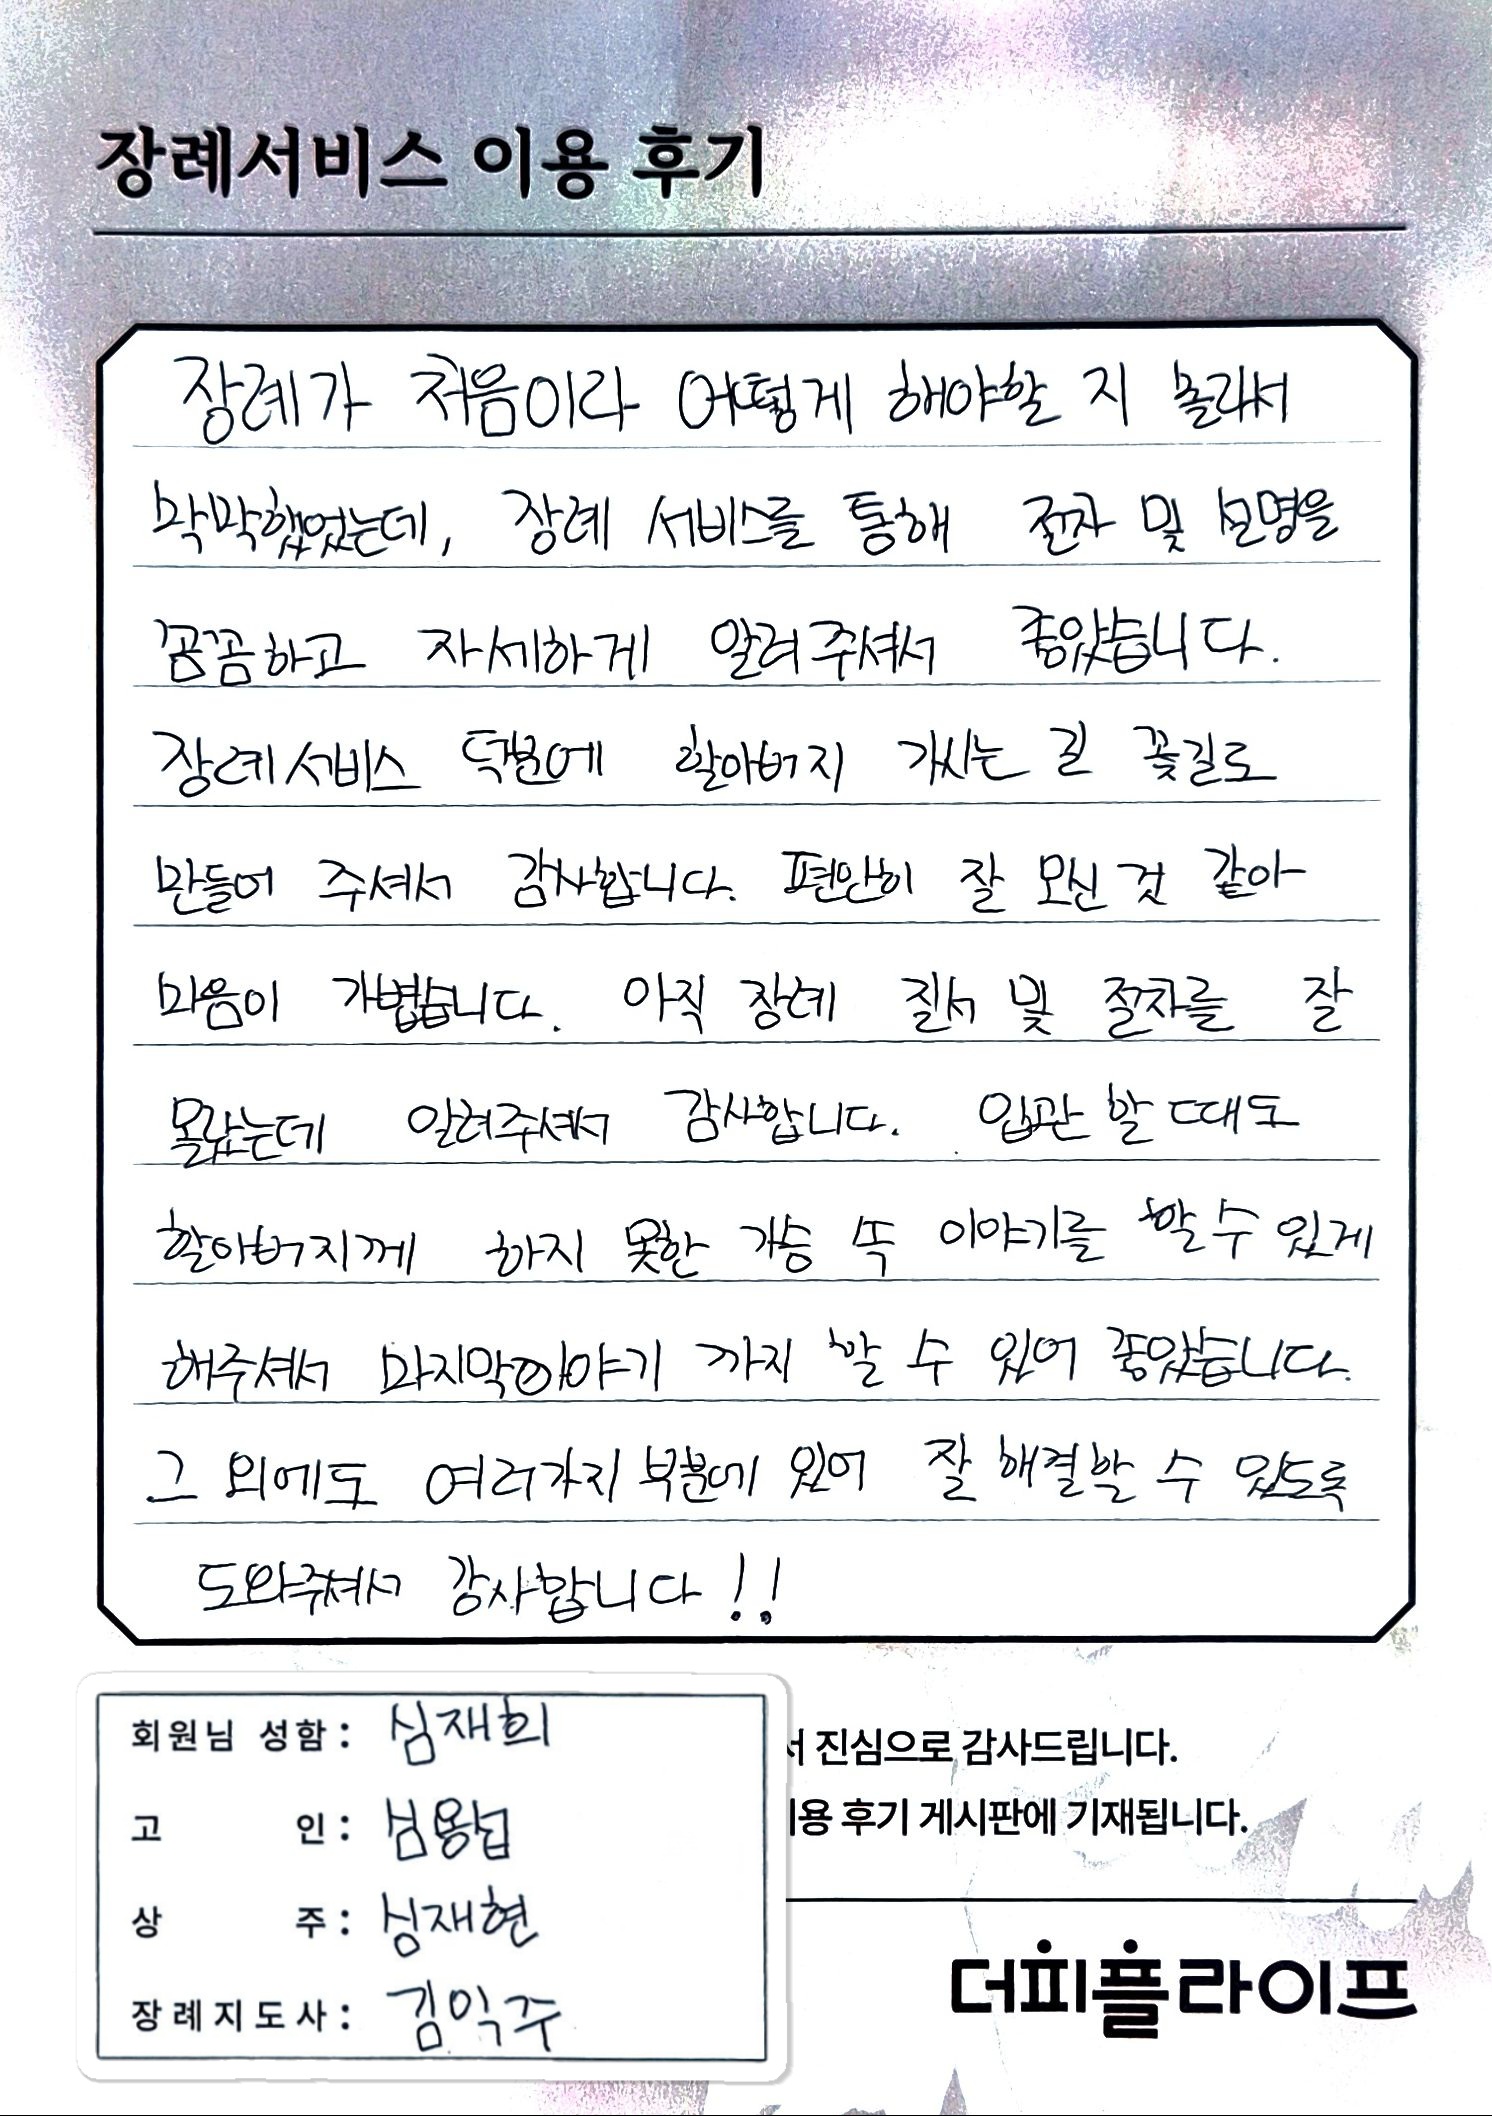 장례서비스 이용 후기
장례가 처음이라 어떻게 해야할 지 몰라서
막막했었는데, 장례 서비스를 통해 절차 및 설명을
꼼꼼하고 자세하게 알려주셔서 좋았습니다.
장례서비스 덕분에 할아버지 가시는 길 꽃길로
만들어 주셔서 감사합니다. 편안히 잘 모신 것 같아
마음이 가볍습니다. 아직 장례 질서 및 절차를 잘
몰랐는데 알려주셔서 감사합니다. 입관 할 때도
할아버지께 하지 못한 가슴 속 이야기를 할 수 있게
해주셔서 마지막이야기 까지 할 수 있어 좋았습니다.
그 외에도 여러가지 부분에 있어 잘 해결할 수 있도록
도와주셔서 감사합니다!!
회원님 성함: 심재희
고 인:
상 주: 심재현
장례지도사: 김익주
서 진심으로 감사드립니다.
이용 후기 게시판에 기재됩니다.
더피플라이프